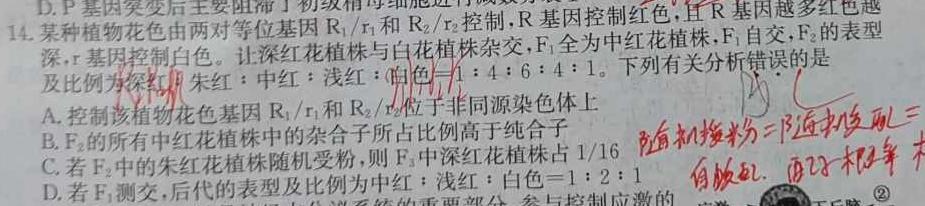 D. P基因突变后主要阻滞了初级精母细胞进行减数分裂
14. 某种植物花色由两对等位基因 R₁/r₁ 和 R₂/r₂ 控制,R 基因控制红色,且 R 基因越多红色越
深,r 基因控制白色。让深红花植株与白花植株杂交,F₁ 全为中红花植株,F₁ 自交,F₂ 的表型
及比例为深红∶朱红∶中红∶浅红∶白色=1∶4∶6∶4∶1。下列有关分析错误的是
A. 控制该植物花色基因 R₁/r₁ 和 R₂/r₂ 位于非同源染色体上
B. F₂的所有中红花植株中的杂合子所占比例高于纯合子
C. 若 F₂ 中的朱红花植株随机受粉,则 F₃ 中深红花植株占 1/16
随机授粉=随机交配=
D. 若 F₁ 测交,后代的表型及比例为中红∶浅红∶白色=1∶2∶1
自由
配子
系统的重要部分,参与控制应激的
②